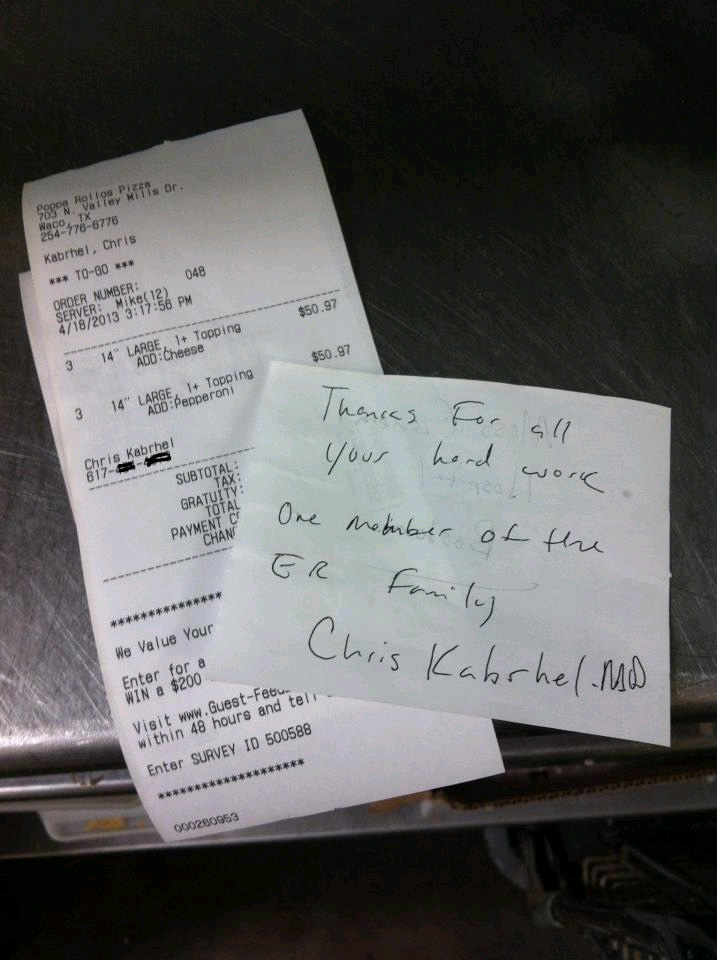 Poppa Rollos Pizza
703 N. Valley Mills Dr.
Waco, TX
254-776-6776
Kabrhel, Chris
*** TO-GO ***
ORDER NUMBER: 048
SERVER: Mike(12)
4/18/2013 3:17:56 PM
3 14" LARGE, 1+ Topping $50.97
ADD:Cheese
3 14" LARGE, 1+ Topping $50.97
ADD:Pepperoni
Chris Kabrhel
617-
SUBTOTAL:
TAX:
GRATUITY:
TOTAL
PAYMENT
CHAN
********************
We Value Your
Enter for a
WIN a $200
Visit www.Guest-Feed
within 48 hours and tell
Enter SURVEY ID 500588
********************
000260953
Thanks For all
your hard work
One member of the
ER Family
Chris Kabrhel.MD